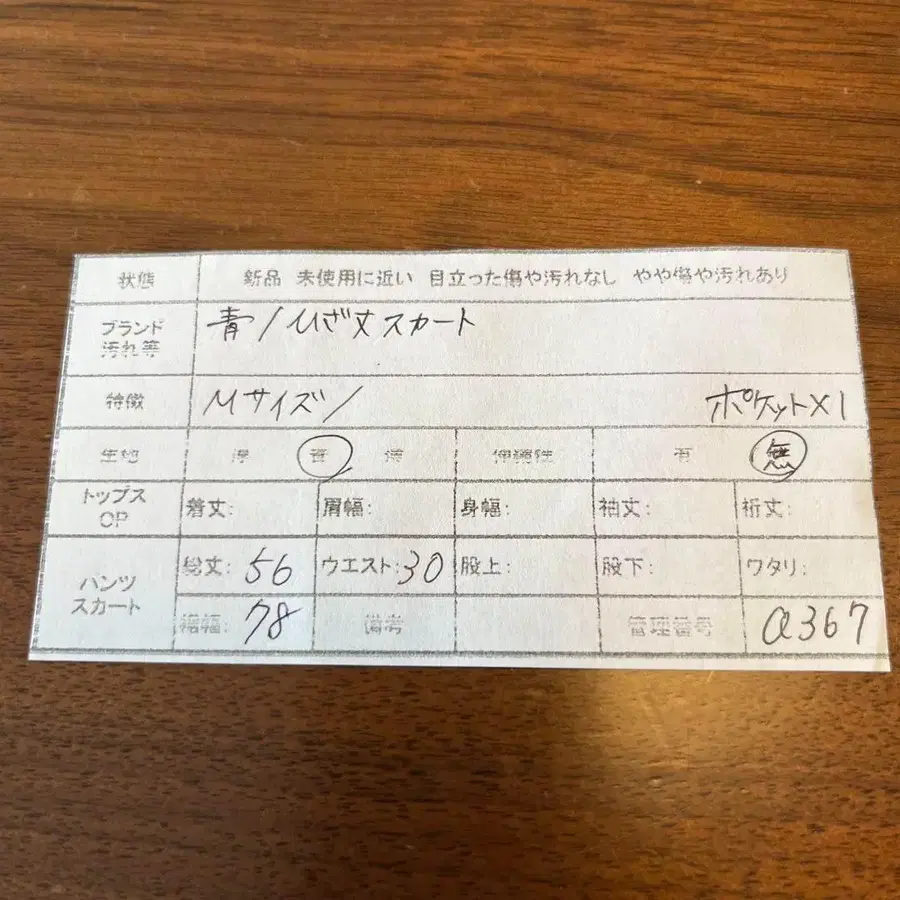 状態 新品 未使用に近い 目立った傷や汚れなし やや傷や汚れあり
ブランド 青/ひざ丈スカート
汚れ等
特徴 Mサイズ/ ポケット×1
生地 厚 普 薄 伸縮性 有 無
トップス 着丈: 肩幅: 身幅: 袖丈: 裄丈:
OP
パンツ 総丈: 56 ウエスト: 30 股上: 股下: ワタリ:
スカート
裾幅: 78 備考 管理番号 a367